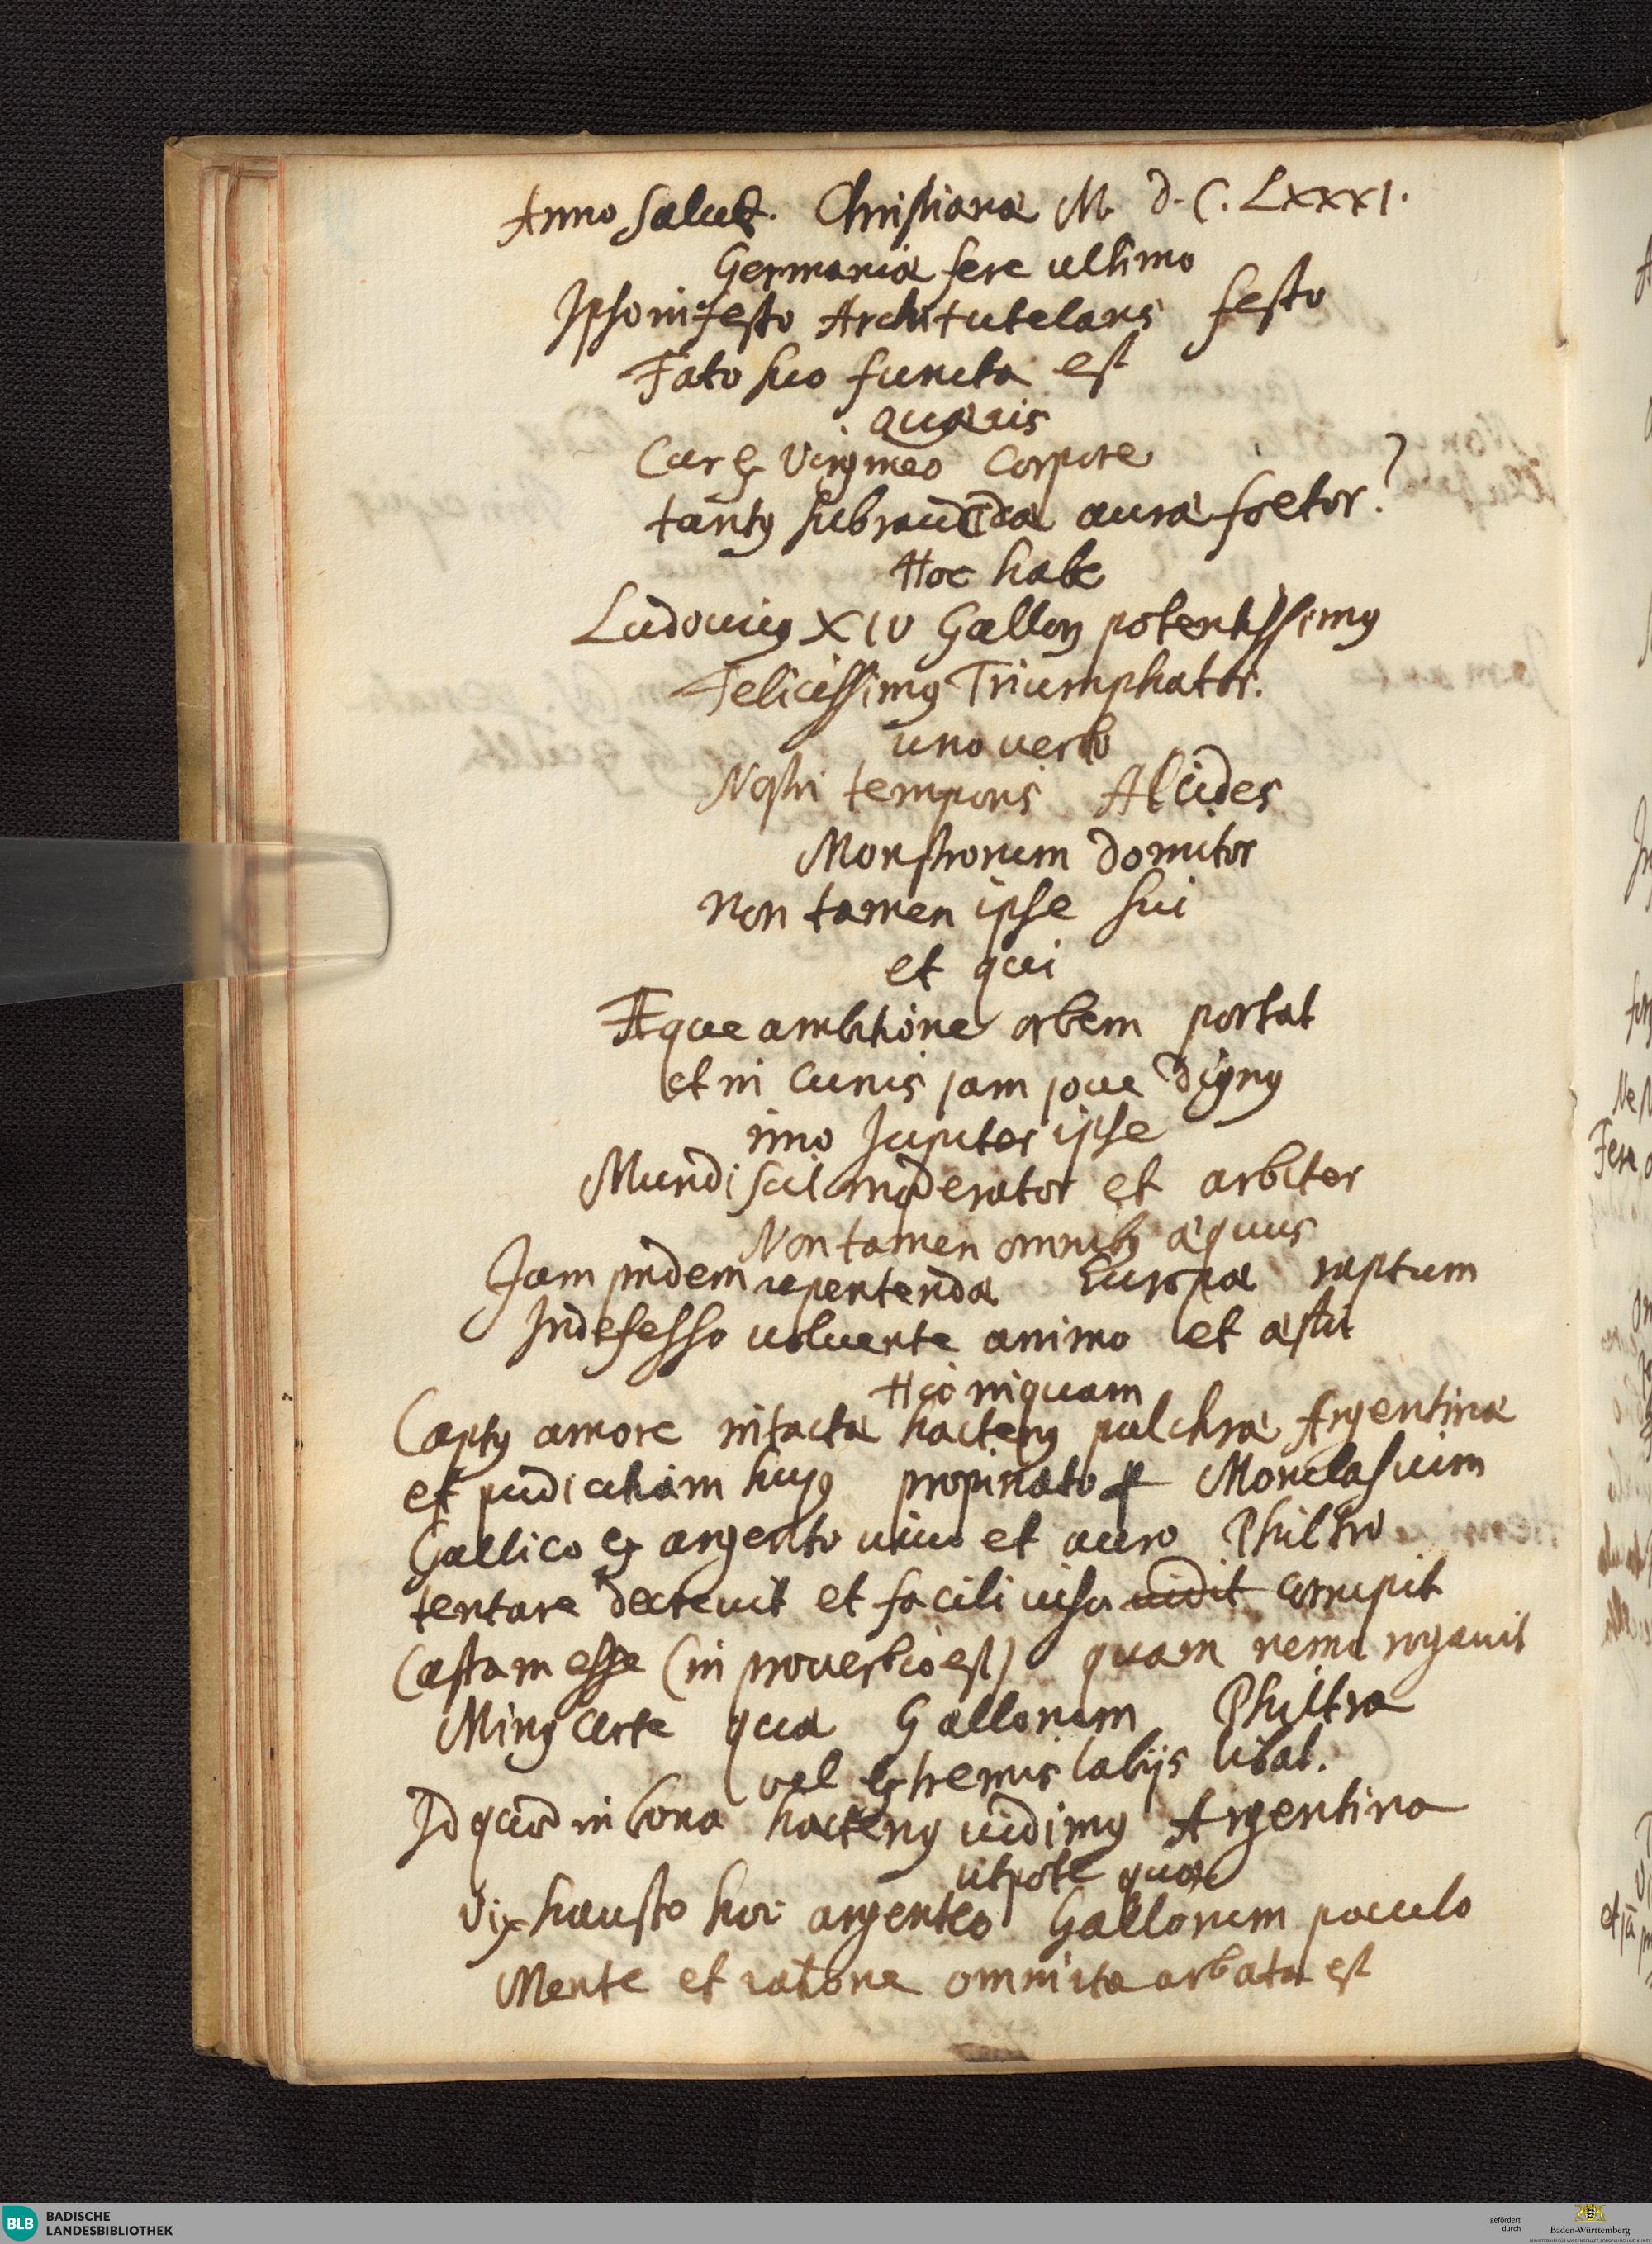 Anno Salut. Christianæ M. D. C. LXXXI.
Germaniæ fere ultimo
Ipso infesto Architutelaris festo
Fato suo functa est
quæris
Cur ex Virgineo Corpore
tantus subrancidæ auræ foetor?
Hoc habe
Ludovicus XIV Gallorum potentissimus
Felicissimus Triumphator.
uno verbo
Nostri temporis Alcides
Monstrorum domitor
Non tamen ipse sui
et qui
Æque ambitione orbem portat
et in cunis jam jove dignus
imo Jupiter ipse
Mundi scil. moderator et arbiter
Non tamen omnibus æquus
Jam pridem repentendæ Europæ raptum
Indefesso volvente animo et æstu
Hic inquam
Captus amore intactæ hactenus pulchræ Argentinæ
et pudicitiam hujus propinato per Monclasium
Gallico ex argento vivo et auro Philtro
tentare decrevit et facili visu vidit corrupit
Castam esse (in proverbio est) quam nemo rogavit
Minus certe quæ Gallorum Philtra
vel extremis labijs libat.
Id quod in bona hactenus vidimus Argentina
utpote quæ
Vix hausto hoc argenteo Gallorum poculo
Mente et ratione omni ita orbata est
BLB BADISCHE
LANDESBIBLIOTHEK
gefördert
durch
Baden-Württemberg